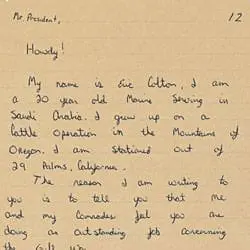 Mr. President,
12
Howdy!
My name is Eric Cotton, I am
a 20 year old Marine Serving in
Saudi Arabia. I grew up on a
Cattle Operation in the Mountains of
Oregon. I am stationed out of
29 Palms, California.
The reason I am writing to
you is to tell you that me
and my Comrades feel you are
doing an outstanding job concerning
the Gulf